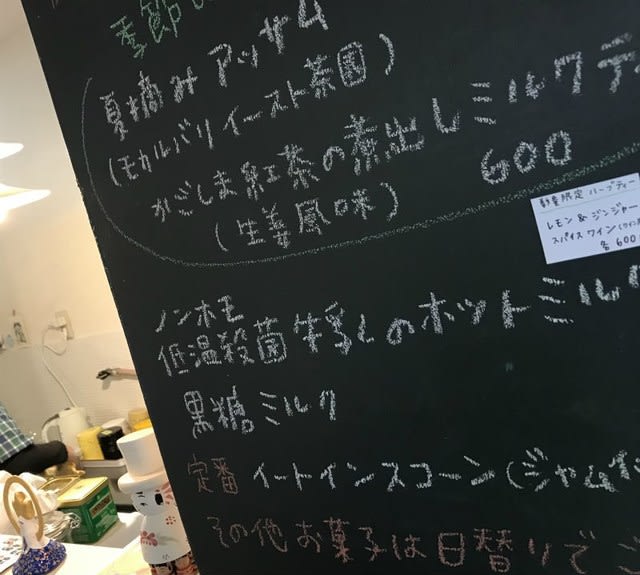 季節の
夏摘みアッサム
(モカルバリイースト茶園)
かごしま紅茶の煮出しミルクティ
(生姜風味)
600
数量限定 ハーブティー
レモン&ジンジャー
スパイスワイン
各600
ノンホモ
低温殺菌牛乳のホットミルク
黒糖ミルク
定番 イートインスコーン(ジャム
その他お菓子は日替りでご